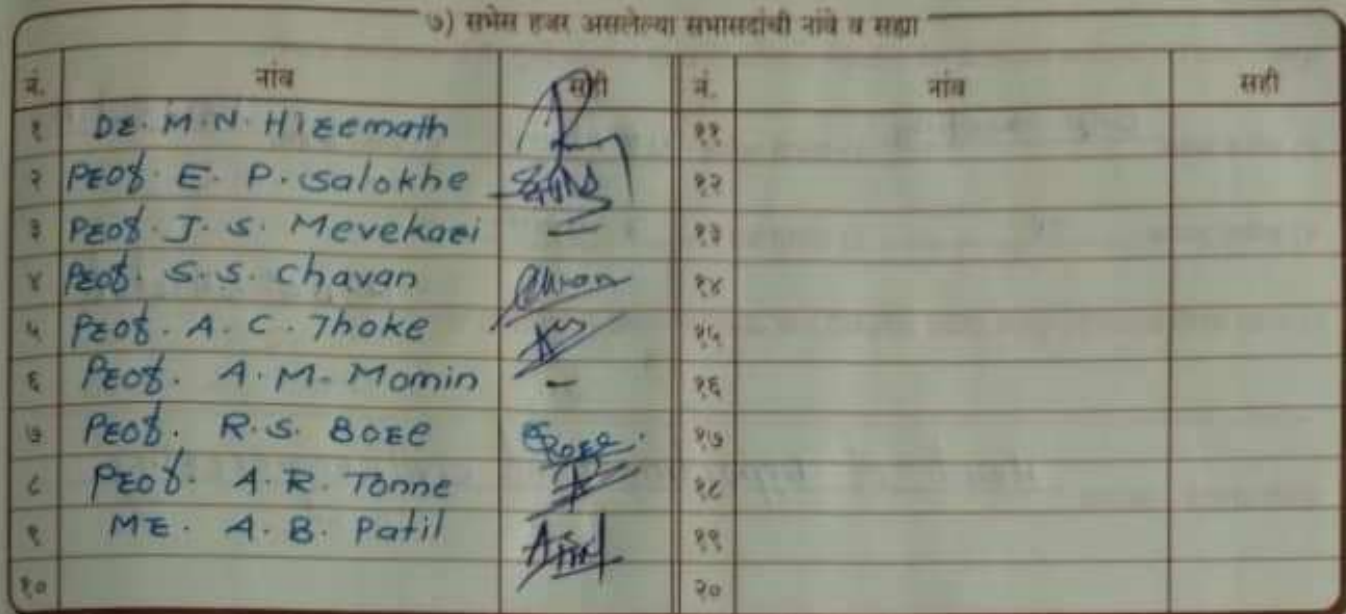 ७) सभेस हजर असलेल्या सभासदांची नांवे व सह्या
नं. नांव सही नं. नांव सही
१ Dr. M. N. Hiremath ११
२ Prof. E. P. Salokhe १२
३ Prof. J. S. Mevekari – १३
४ Prof. S. S. Chavan १४
५ Prof. A. C. Thoke १५
६ Prof. A. M. Momin – १६
७ Prof. R. S. Bore १७
८ Prof. A. R. Tonne १८
९ Mr. A. B. Patil १९
१० २०